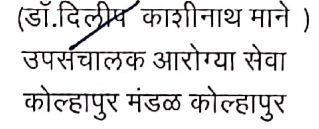 (डॉ.दिलीप काशीनाथ माने )
उपसंचालक आरोग्या सेवा
कोल्हापुर मंडळ कोल्हापुर